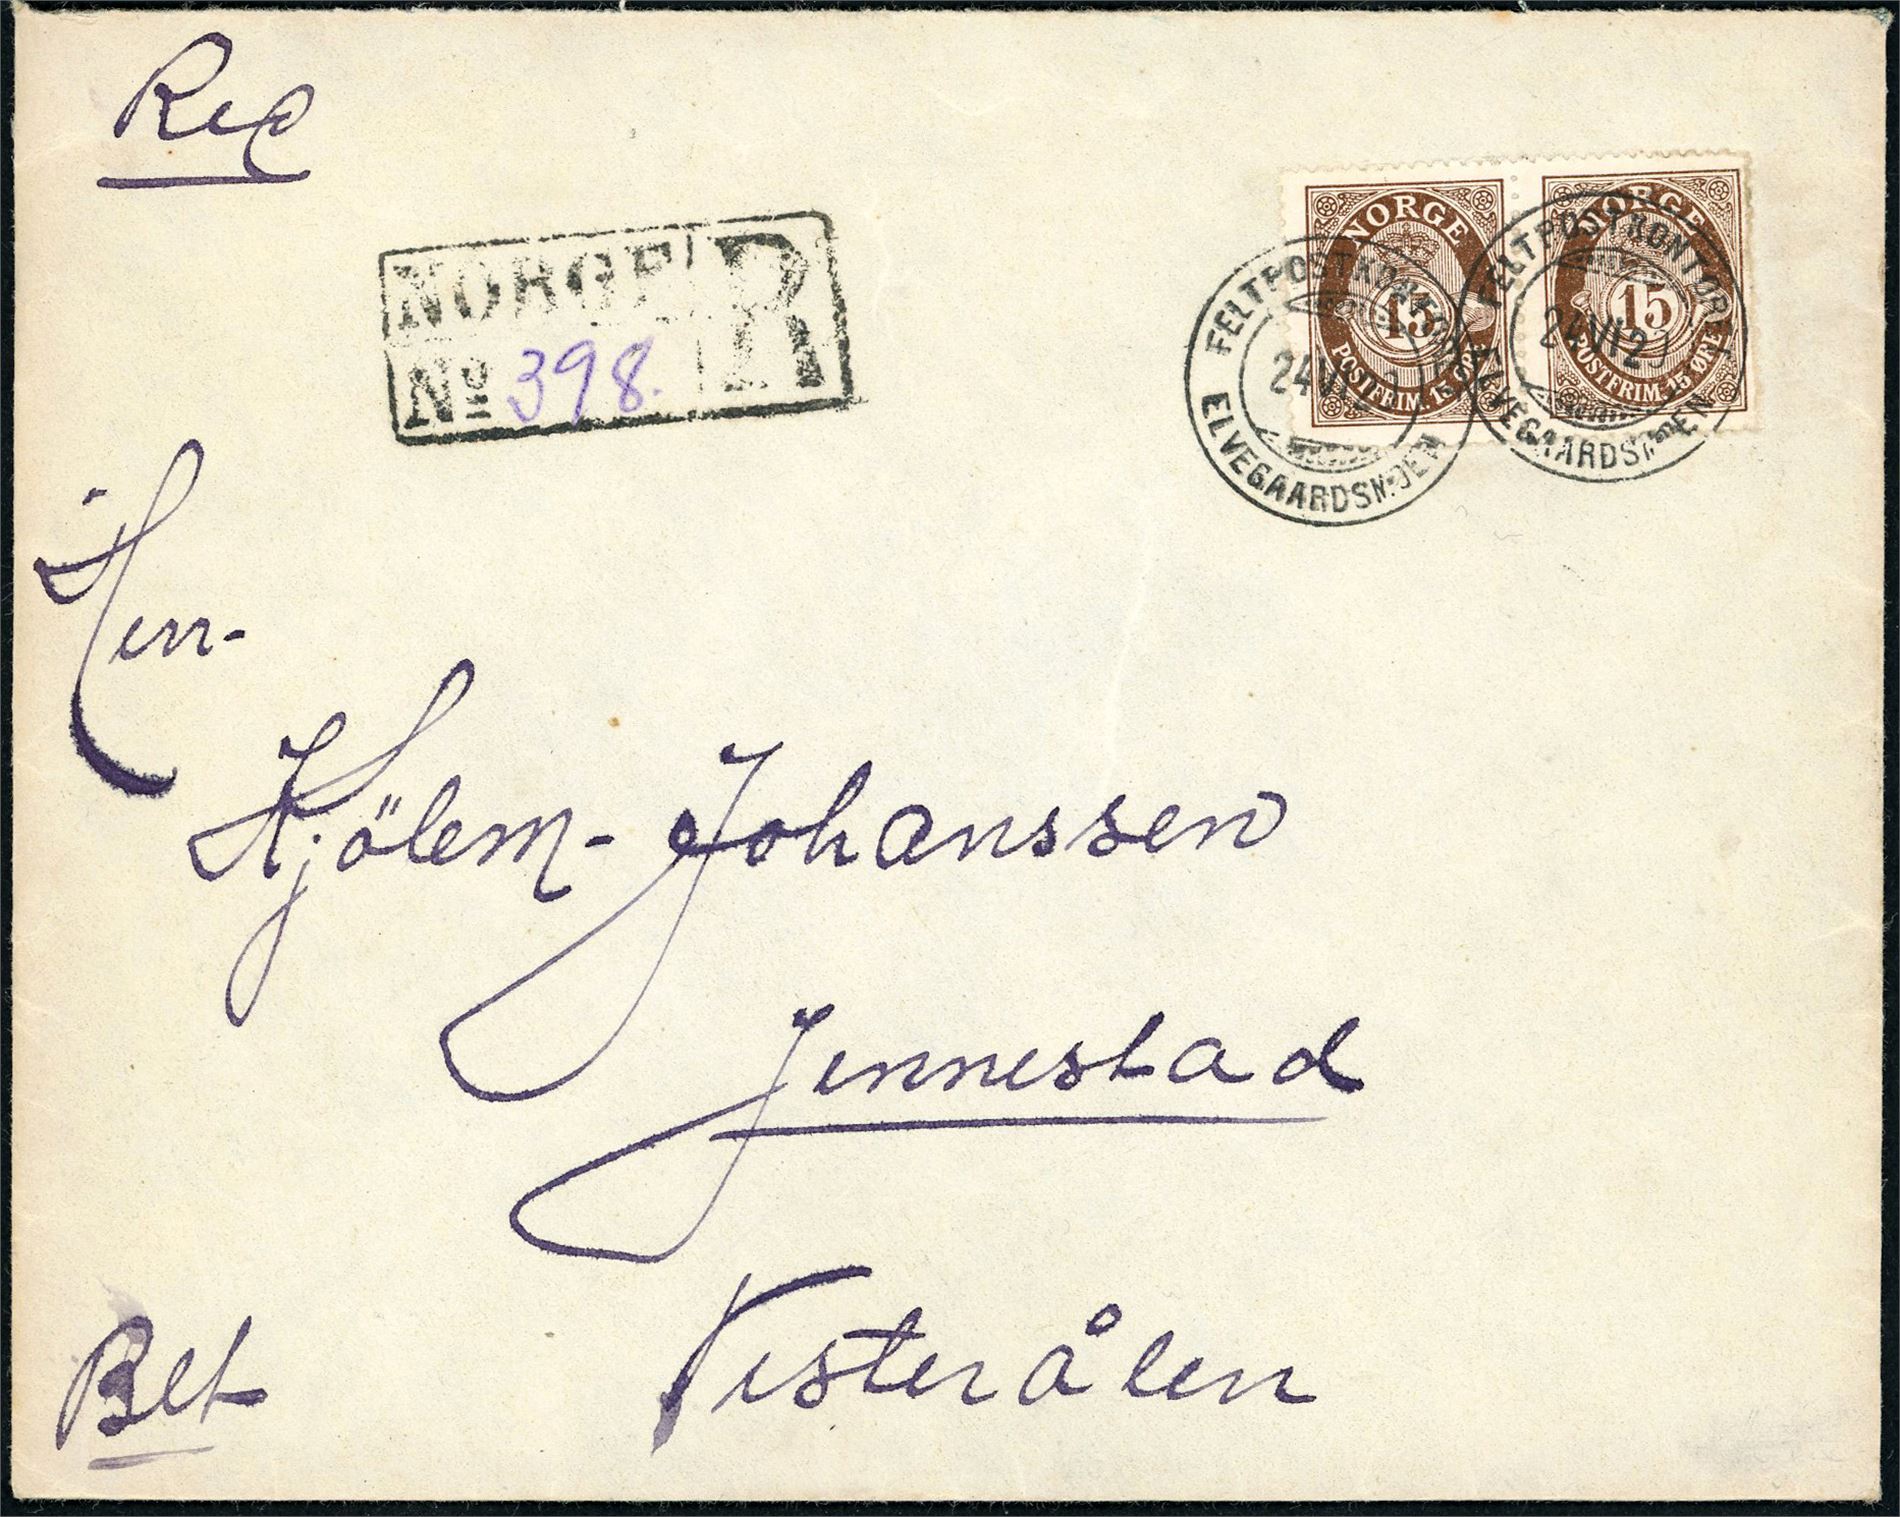 Rec
NORGE R
No 398.
NORGE
15
POSTFRIM. 15 ØRE
NORGE
15
POSTFRIM. 15 ØRE
FELTPOSTKONTORET
24 VI 2
ELVEGAARDSM:OEN
FELTPOSTKONTORET
24 VI 2
ELVEGAARDSM:OEN
Herr-
Kjölem-Johanssen
Jennestad
Vesterålen
Bet